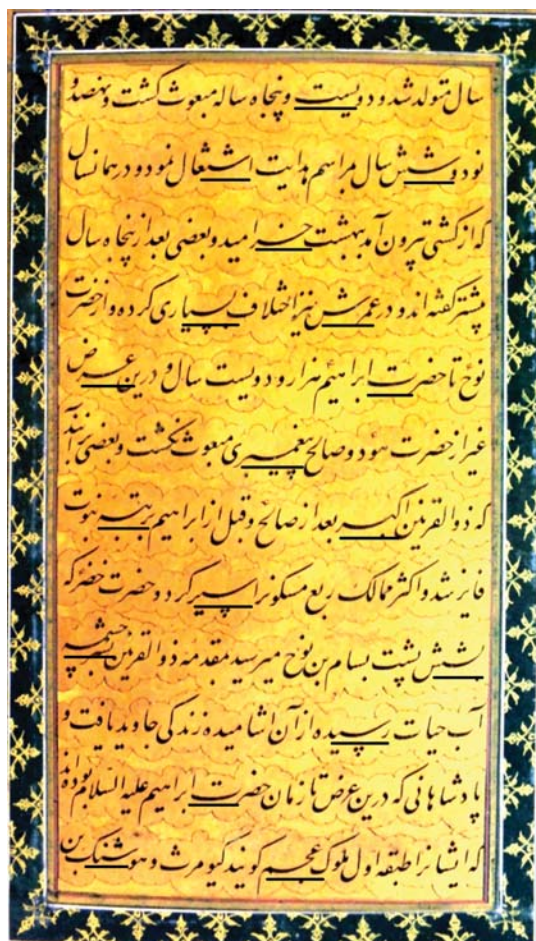 سال متولد شد و دویست و پنجاه ساله مبعوث گشت و نهصد و
نود و شش سال مراسم هدایت اشتغال نمود و در همانسال
که از کشتی بیرون آمد ببهشت خرامید و بعضی بعد از پنجاه سال
پیشتر گفته اند و در عمرش نیز اختلاف بسیاری کرده و از حضرت
نوح تا حضرت ابراهیم هزار و دویست سال و درین عرض
غیر از حضرت هود و صالح پیغمبری مبعوث نگشت و بعضی برآنند
که ذوالقرنین اکبر بعد از صالح و قبل از ابراهیم برتبه نبوت
فایز شد و اکثر ممالک ربع مسکونرا سیر کرد و حضرت خضر که
بشش پشت بسام بن نوح میرسید مقدمه ذوالقرنین بچشمه
آب حیات رسیده از آن اشامیده زندگی جاوید یافت و
پادشاهانی که درین عرض تا زمان حضرت ابراهیم علیه السلام بوده اند
که ایشانرا طبقه اول ملوک عجم گویند کیومرث و هوشنک بن